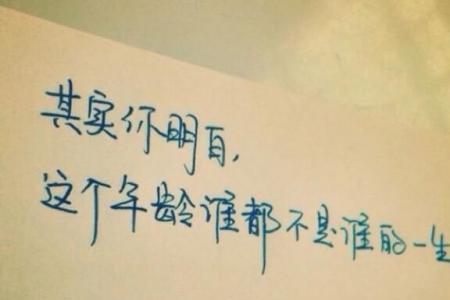 其实你明白，
这个年龄谁都不是谁的一生